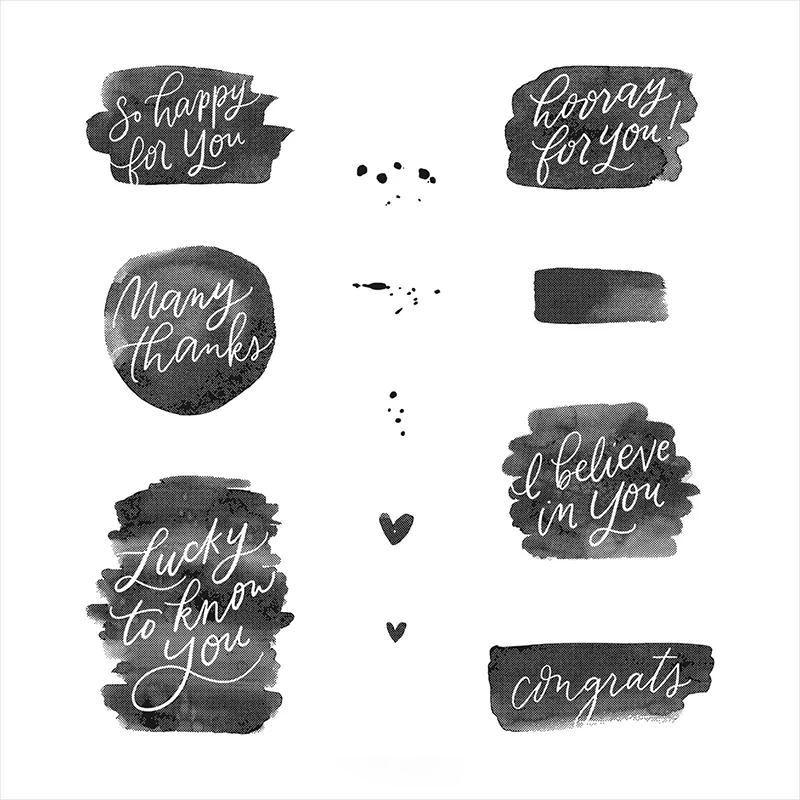 so happy
for you
Many
thanks
Lucky
to know
you
hooray
for you!
I believe
in you
congrats